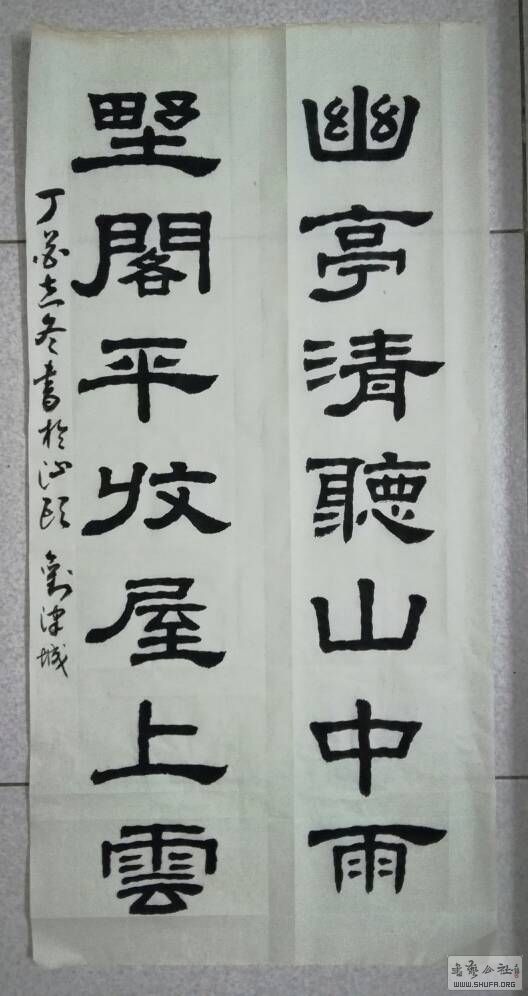 幽亭清聽山中雨
墅閣平收屋上雲
丁酉立冬書於汕頭 劉津城
書藝公社
WWW.SHUFA.ORG